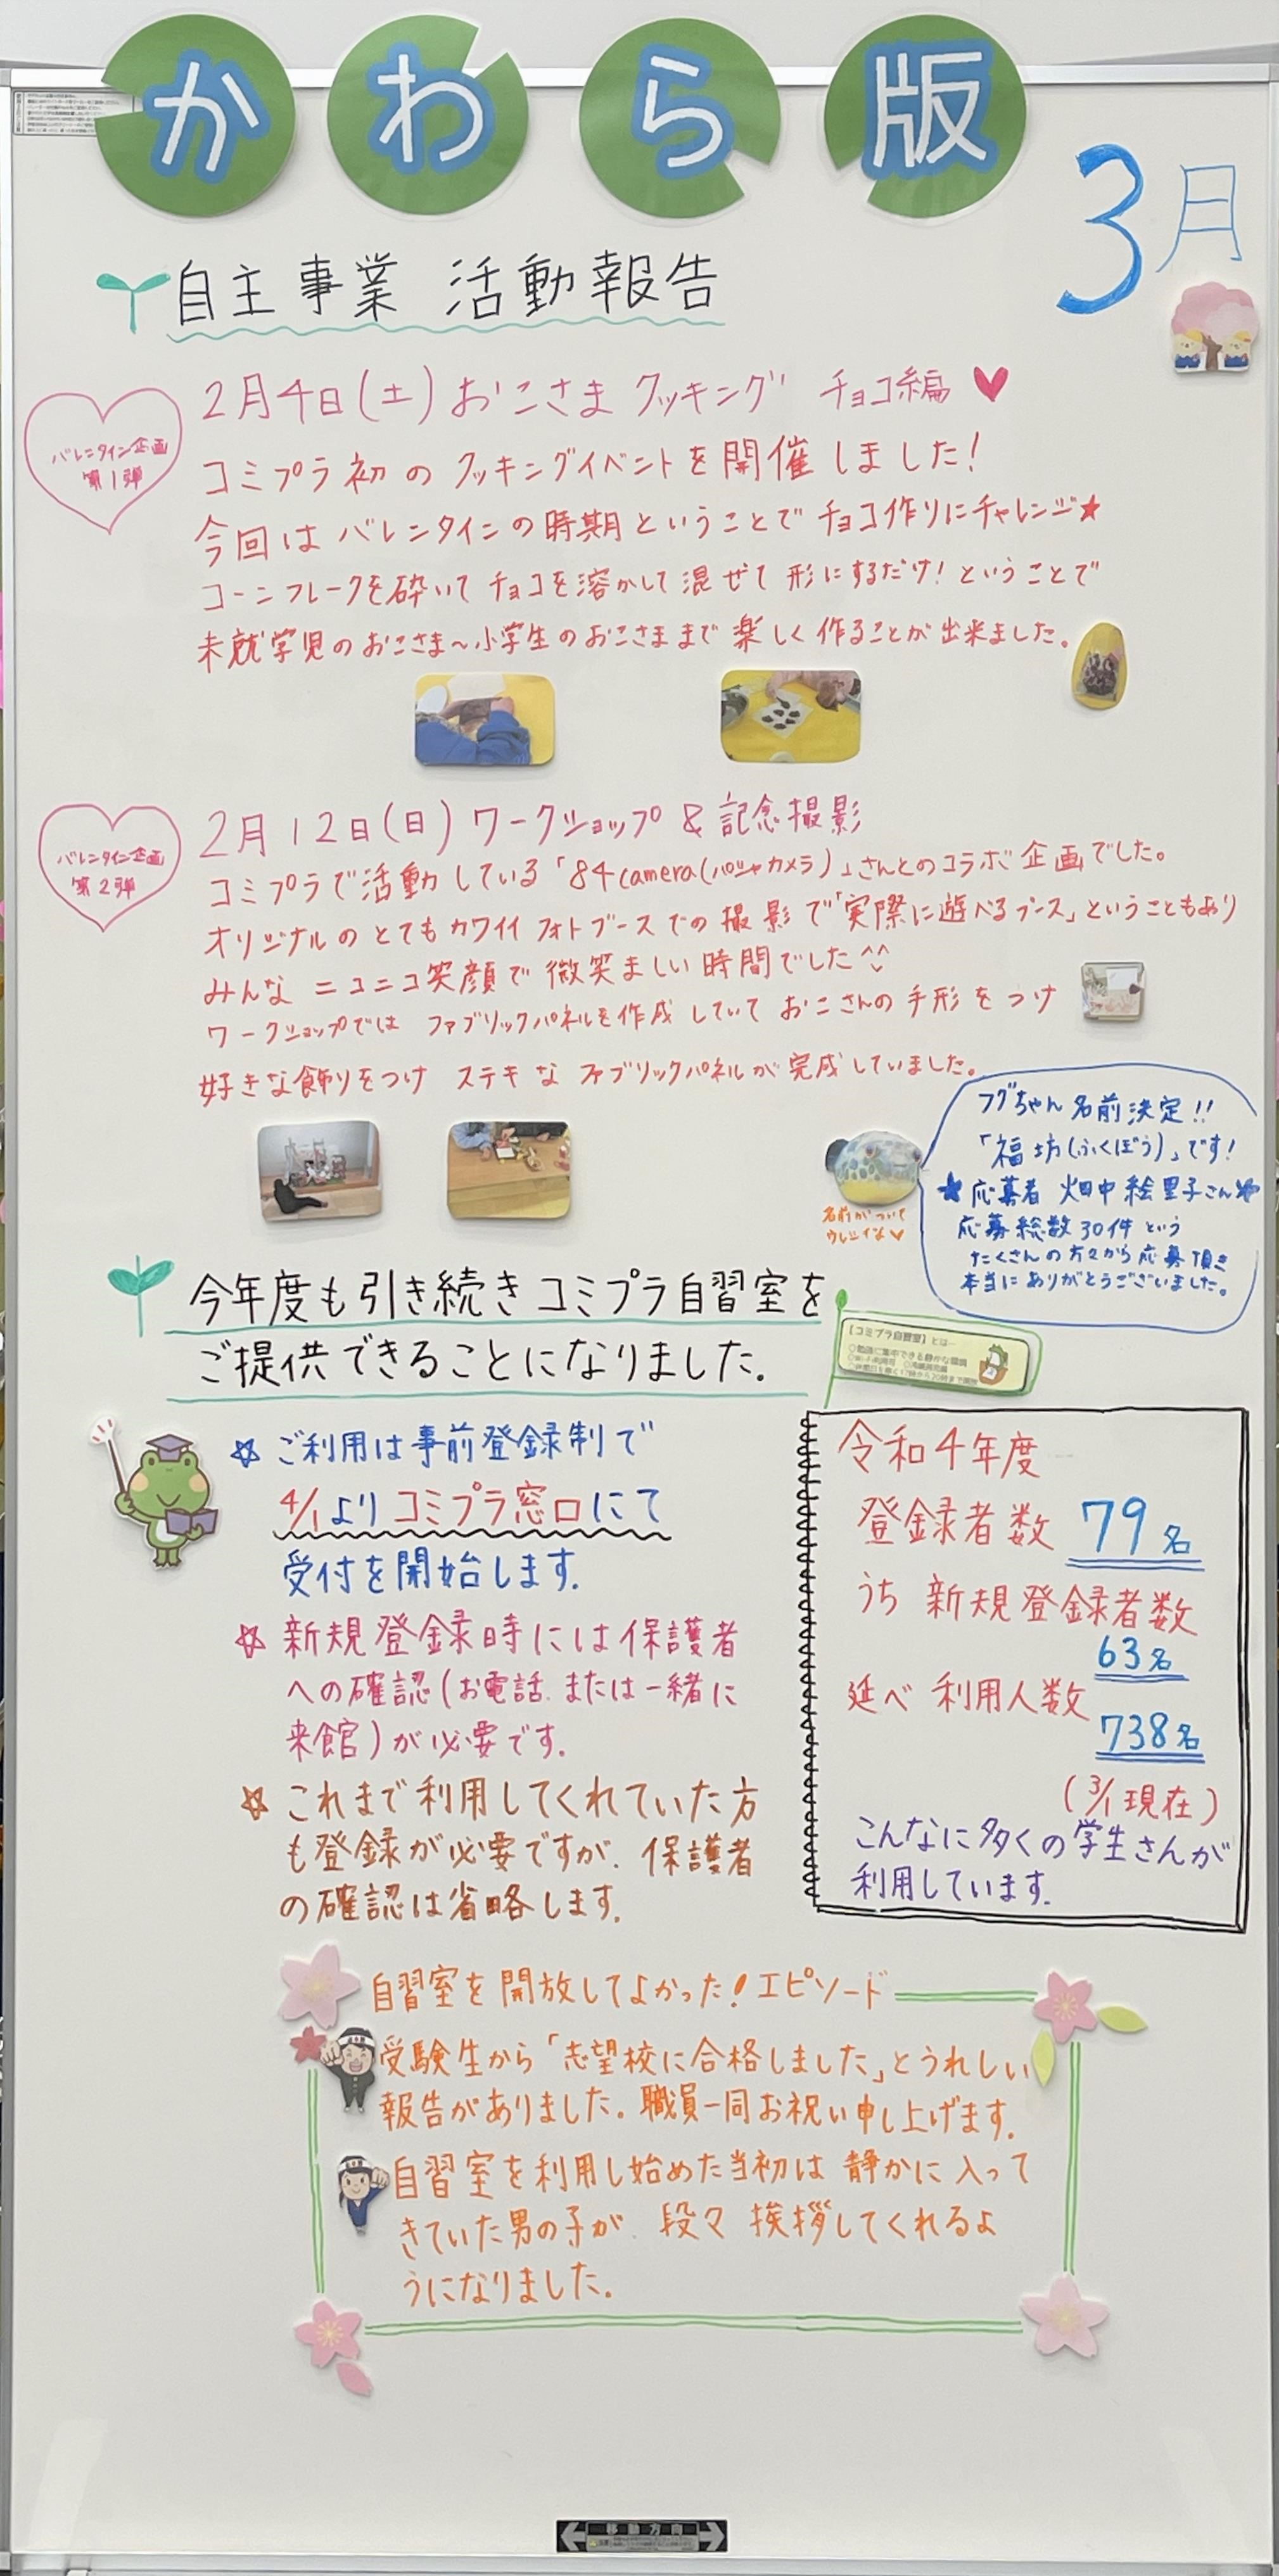 かわら版
3月
自主事業 活動報告
バレンタイン企画
第1弾
2月4日(土)おこさまクッキング チョコ編♥
コミプラ初のクッキングイベントを開催しました!
今回はバレンタインの時期ということでチョコ作りにチャレンジ★
コーンフレークを砕いてチョコを溶かして混ぜて形にするだけ!ということで
未就学児のおこさま〜小学生のおこさままで楽しく作ることが出来ました。
バレンタイン企画
第2弾
2月12日(日)ワークショップ&記念撮影
コミプラで活動している「84camera(パシャカメラ)」さんとのコラボ企画でした。
オリジナルのとてもカワイイフォトブースでの撮影で「実際に遊べるブース」ということもあり
みんなニコニコ笑顔で微笑ましい時間でした^^
ワークショップではファブリックパネルを作成していておこさんの手形をつけ
好きな飾りをつけステキなファブリックパネルが完成していました。
フグちゃん名前決定!!
「福坊(ふくぼう)」です!
★応募者 畑中絵里子さん★
応募総数30件という
たくさんの方々から応募頂き
本当にありがとうございました。
名前がついて
ウレシイな♥
今年度も引き続きコミプラ自習室を
ご提供できることになりました。
【コミプラ自習室】とは…
☆ご利用は事前登録制で
4/1よりコミプラ窓口にて
受付を開始します.
☆新規登録時には保護者
への確認(お電話.または一緒に
来館)が必要です.
☆これまで利用してくれていた方
も登録が必要ですが.保護者
の確認は省略します.
令和4年度
登録者数 79名
うち新規登録者数
63名
延べ利用人数
738名
(3/1現在)
こんなに多くの学生さんが
利用しています.
自習室を開放してよかった!エピソード
受験生から「志望校に合格しました」とうれしい
報告がありました。職員一同お祝い申し上げます.
自習室を利用し始めた当初は静かに入って
きていた男の子が.段々挨拶してくれるよ
うになりました.
移動方向